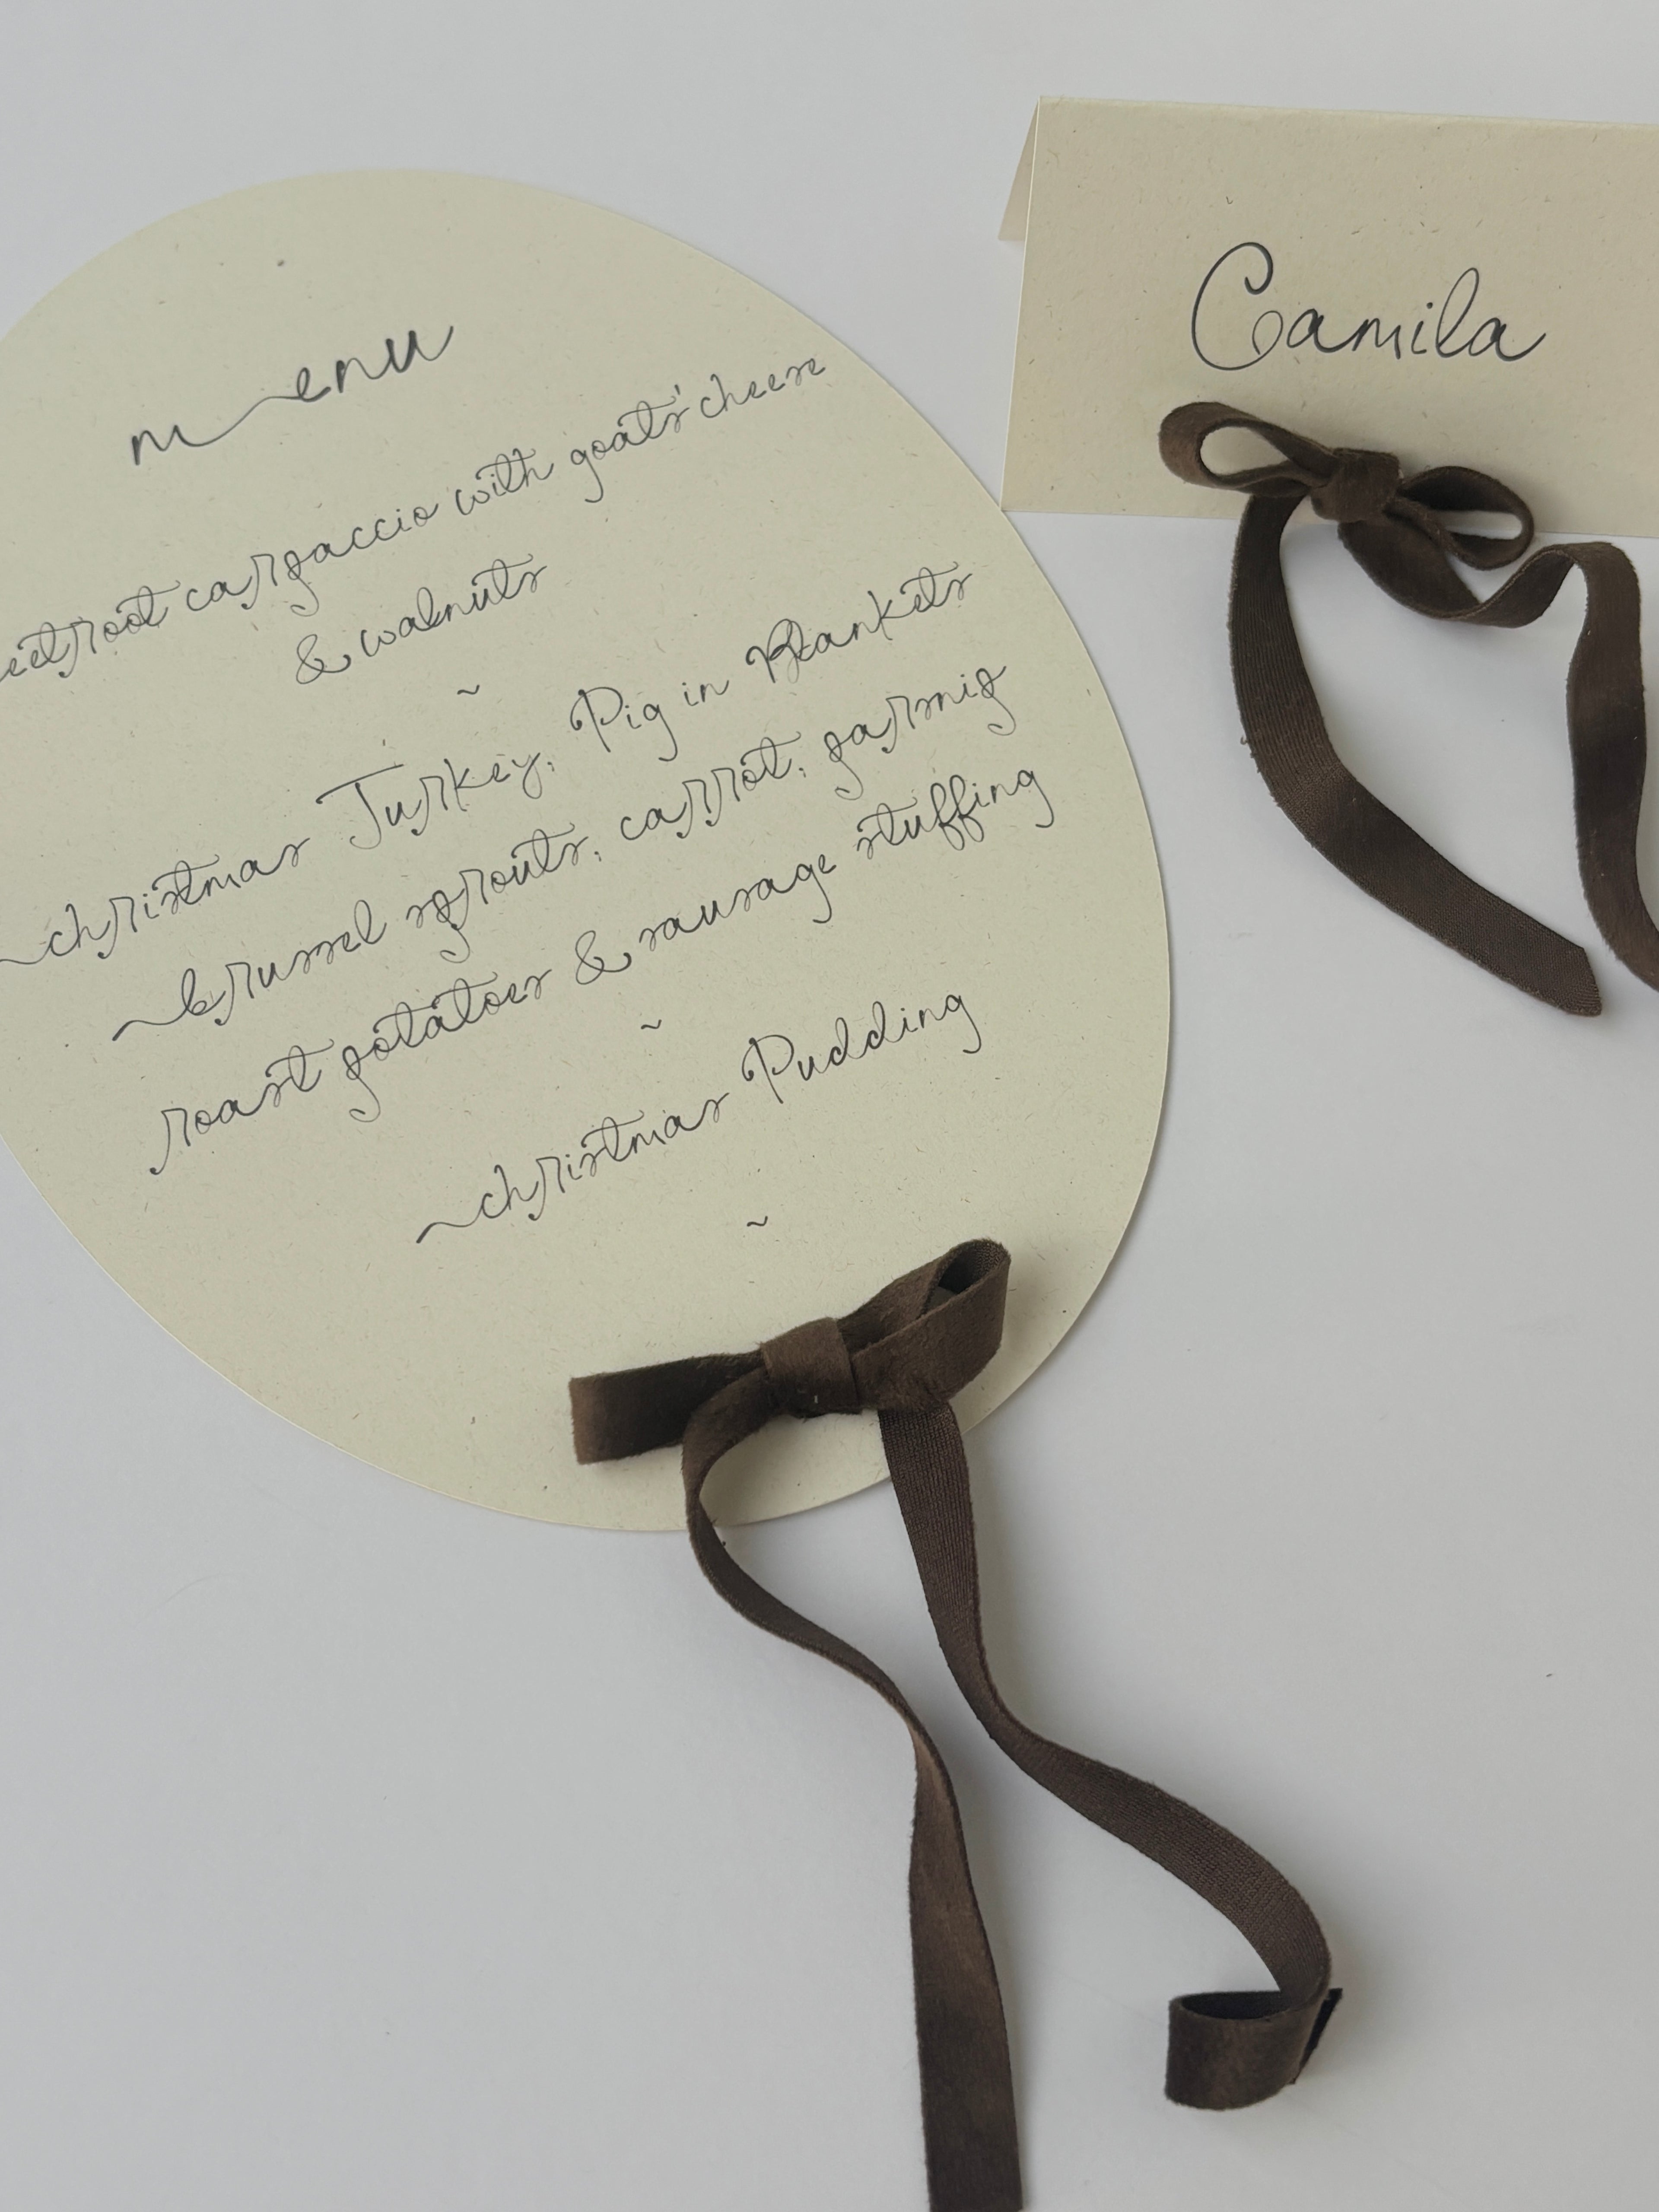 menu
eetroot carpaccio with goats' cheese
& walnuts
~
christmas Turkey, Pig in Blankets
brussel sprouts, carrot, parsnip
roast potatoes & sausage stuffing
~
christmas Pudding
~
Camila